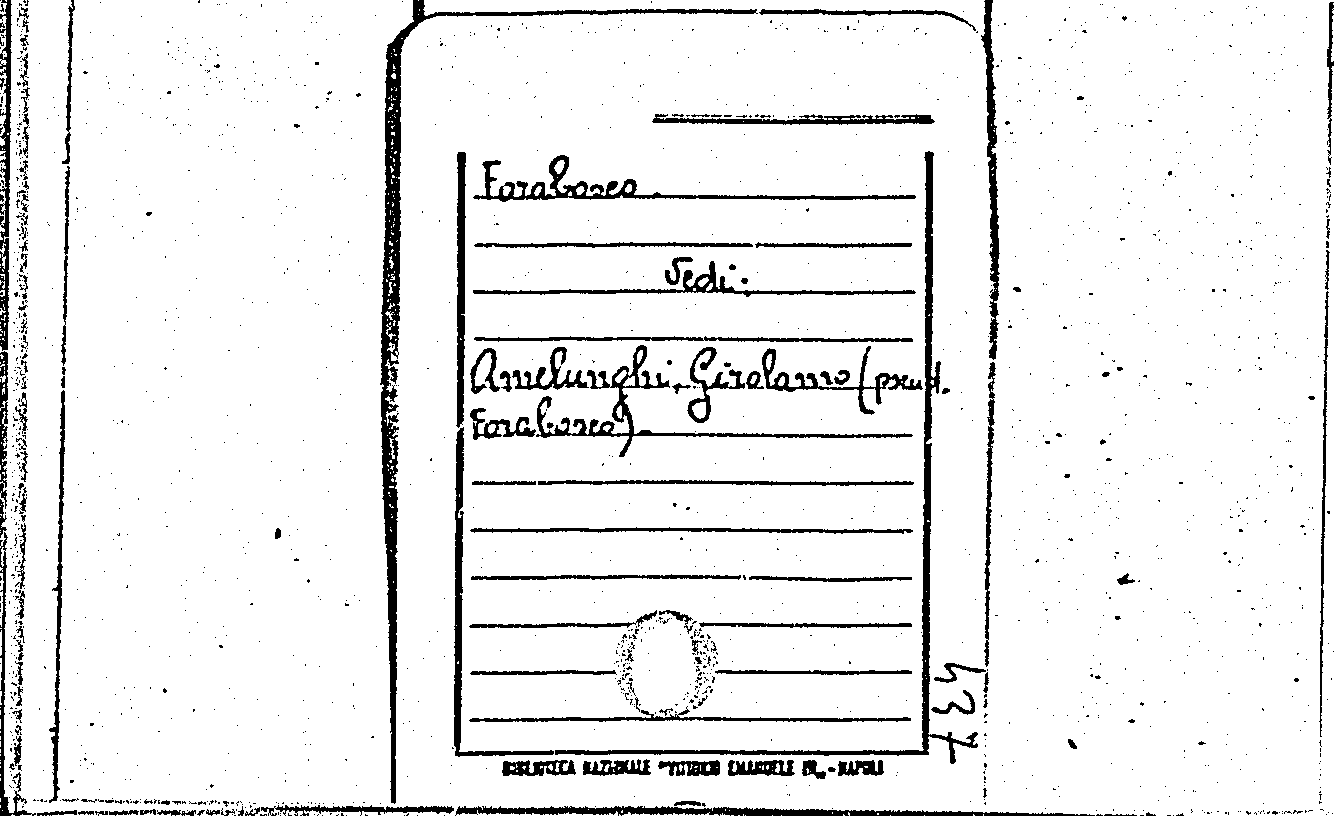 Forabosco.
Vedi:
Amelunghi, Girolamo (pseud.
Forabosco).
BIBLIOTECA NAZIONALE "VITTORIO EMANUELE III„ - NAPOLI